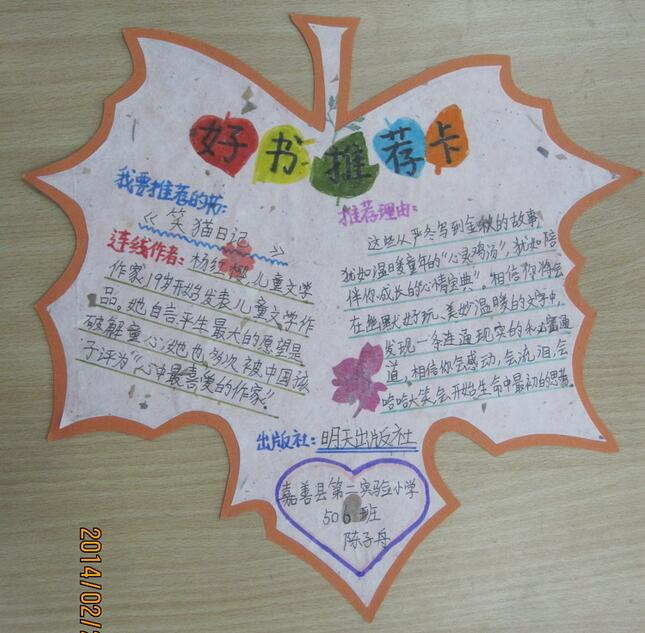 好书推荐卡
我要推荐的书:
《笑猫日记》
连线作者:杨红樱,儿童文学
作家,19岁开始发表儿童文学作
品。她自言平生最大的愿望是
破解童心,她也多次被中国孩
子评为“心中最喜爱的作家”。
推荐理由:
这些从严冬写到金秋的故事,
犹如温暖童年的“心灵鸡汤”,犹如陪
伴你成长的心情宝典”。相信你将会
在幽默好玩、美妙温暖的文字中,
发现一条连通现实的秘密通
道,相信你会感动,会流泪,会
哈哈大笑,会开始生命中最初的思考。
出版社:明天出版社
嘉善县第二实验小学
506班
陈子舟
2014/02/